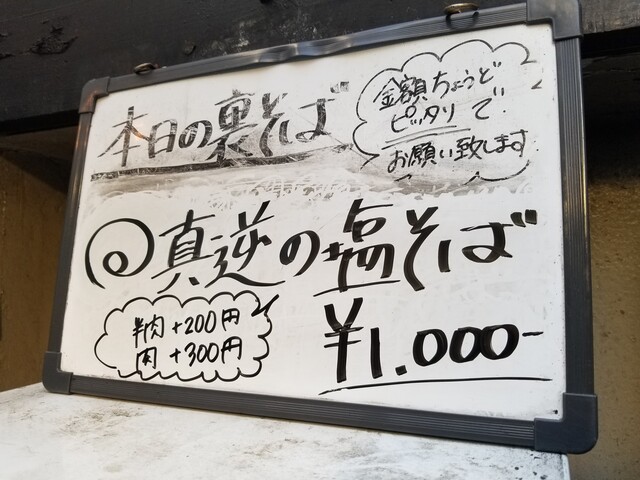 本日の裏そば
金額ちょうど
ピッタリで
お願い致します
真逆の塩そば
半肉+200円
肉+300円
¥1.000-